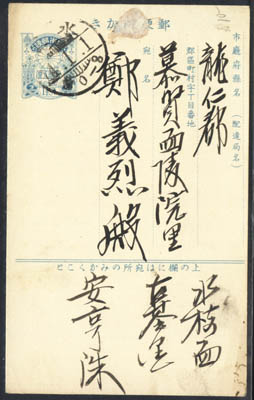 郵便はかき
市廳府縣名
(配達局名)
郡區町村字丁目番地
宛名
龍仁郡
慕賢面陵院里
鄭義烈殿
上の欄には宛所のみかくこと
水枝面
古基里
安亨洙